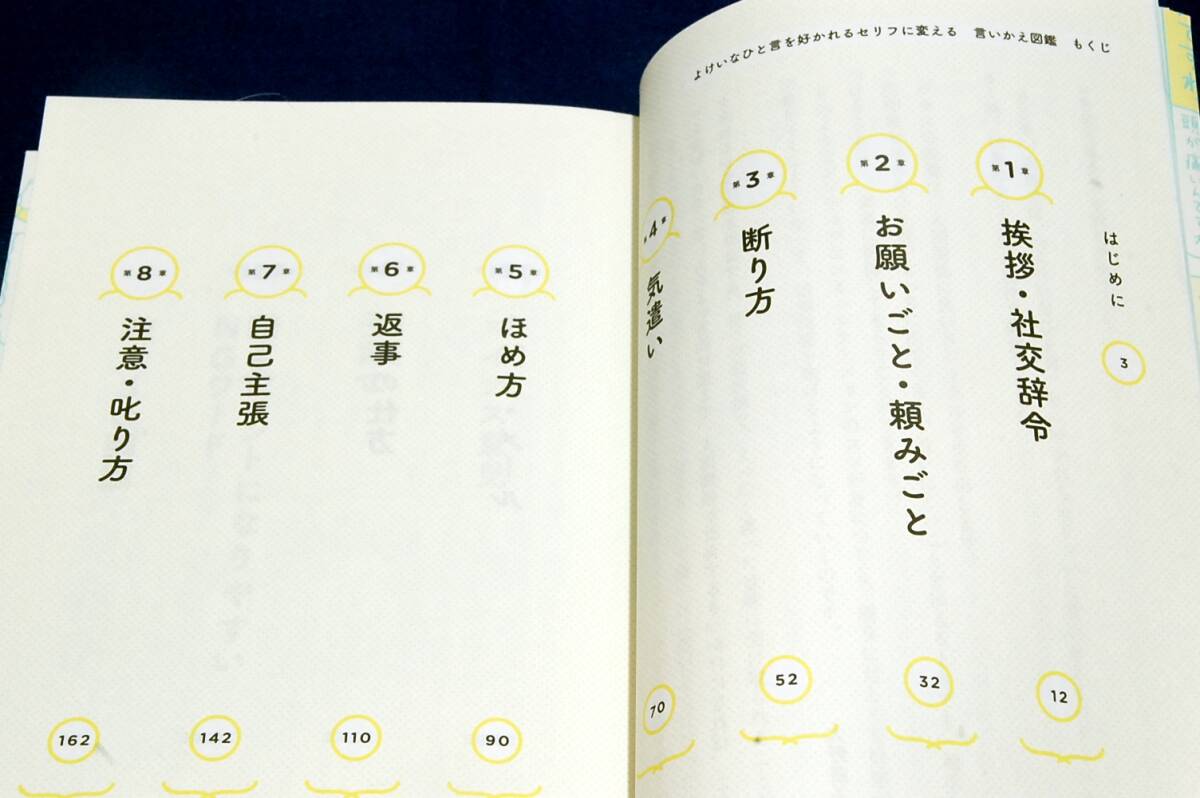 よけいなひと言を好かれるセリフに変える 言いかえ図鑑 もくじ
はじめに
3
第1章
挨拶・社交辞令
12
第2章
お願いごと・頼みごと
32
第3章
断り方
52
第4章
気遣い
70
第5章
ほめ方
90
第6章
返事
110
第7章
自己主張
142
第8章
注意・叱り方
162